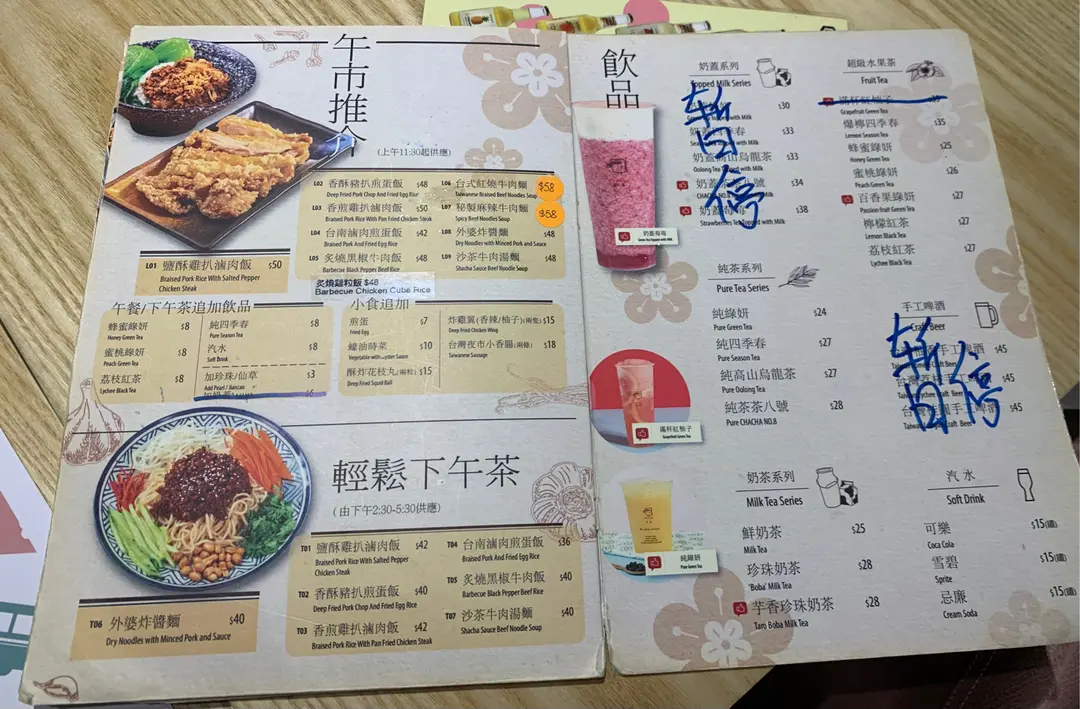 午市推介
(上午11:30起供應)
L01 鹽酥雞扒滷肉飯 $50
Braised Pork Rice With Salted Pepper
Chicken Steak
L02 香酥豬扒煎蛋飯 $48
Deep Fried Pork Chop And Fried Egg Rice
L03 香煎雞扒滷肉飯 $50
Braised Pork Rice With Pan Fried Chicken Steak
L04 台南滷肉煎蛋飯 $42
Braised Pork And Fried Egg Rice
L05 炙燒黑椒牛肉飯 $48
Barbecue Black Pepper Beef Rice
炙燒雞粒飯 $48
Barbecue Chicken Cube Rice
L06 台式紅燒牛肉麵 $58
Taiwanese Braised Beef Noodles Soup
L07 秘製麻辣牛肉麵 $58
Spicy Beef Noodles Soup
L08 外婆炸醬麵 $48
Dry Noodles with Minced Pork and Sauce
L09 沙茶牛肉湯麵 $48
Shacha Sauce Beef Noodle Soup
午餐/下午茶追加飲品
蜂蜜綠妍 $8
Honey Green Tea
蜜桃綠妍 $8
Peach Green Tea
荔枝紅茶 $8
Lychee Black Tea
純四季春 $8
Pure Season Tea
汽水 $8
Soft Drink
加珍珠/仙草 $3
Add Pearl / Aancao
小食追加
煎蛋 $7
Fried Egg
蠔油時菜 $10
Vegetable with Oyster Sauce
酥炸花枝丸(兩粒) $15
Deep Fried Squid Ball
炸雞翼(香辣/柚子)(兩隻) $15
Deep Fried Chicken Wing
台灣夜市小香腸(兩條) $18
Taiwanese Sausage
輕鬆下午茶
(由下午2:30-5:30供應)
T01 鹽酥雞扒滷肉飯 $42
Braised Pork Rice With Salted Pepper
Chicken Steak
T02 香酥豬扒煎蛋飯 $40
Deep Fried Pork Chop And Fried Egg Rice
T03 香煎雞扒滷肉飯 $42
Braised Pork Rice With Pan Fried Chicken Steak
T04 台南滷肉煎蛋飯 $36
Braised Pork And Fried Egg Rice
T05 炙燒黑椒牛肉飯 $40
Barbecue Black Pepper Beef Rice
T07 沙茶牛肉湯麵 $40
Shacha Sauce Beef Noodle Soup
T06 外婆炸醬麵 $40
Dry Noodles with Minced Pork and Sauce
飲品
奶蓋莓莓
Green Tea Topped with Milk
滿杯紅柚子
Grapefruit Green Tea
純綠妍
Pure Green Tea
奶蓋系列
Topped Milk Series
暫停
$30
$33
奶蓋高山烏龍茶 $33
Oolong Tea Topped with Milk
$34
$38
Strawberries Tea Topped with Milk
純茶系列
Pure Tea Series
純綠妍 $24
Pure Green Tea
純四季春 $27
Pure Season Tea
純高山烏龍茶 $27
Pure Oolong Tea
純茶茶八號 $28
Pure CHACHA NO.8
奶茶系列
Milk Tea Series
鮮奶茶 $25
Milk Tea
珍珠奶茶 $28
'Boba' Milk Tea
芋香珍珠奶茶 $28
Taro Boba Milk Tea
超級水果茶
Fruit Tea
滿杯紅柚子
Grapefruit Green Tea
爆檸四季春 $35
Lemon Season Tea
蜂蜜綠妍 $25
Honey Green Tea
蜜桃綠妍 $26
Peach Green Tea
百香果綠妍 $27
Passion fruit Green Tea
檸檬紅茶 $27
Lemon Black Tea
荔枝紅茶 $27
Lychee Black Tea
手工啤酒
Craft Beer
暫停
$45
$45
$45
汽水
Soft Drink
可樂 $15
Coca Cola
雪碧 $15
Sprite
忌廉 $15
Cream Soda